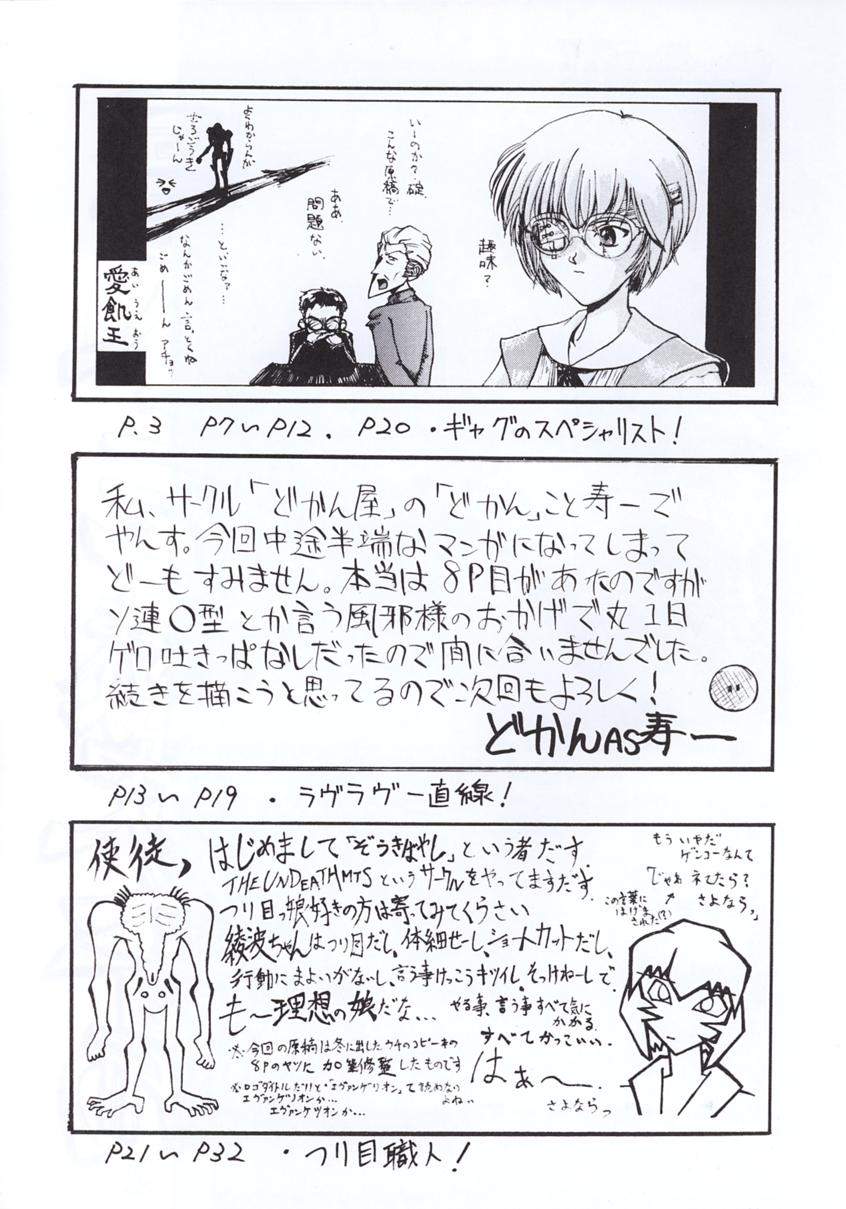 いーのか？碇、
こんな原稿で…
ああ、
問題ない、
趣味？
よくわからんが
しょごうき
じゃーん
…といいなァ…
なんかごめん、言っとくね
ごめーーん アチョッ
愛飢王
あい うえ おう
P.3 P7〜P12. P20・ギャグのスペシャリスト！
私、サークル「どかん屋」の「どかん」こと寿一で
やんす。今回中途半端なマンガになってしまって
どーもすみません。本当は8P目があたのですが
ソ連〇型とか言う風邪様のおかげで丸1日
ゲロ吐きっぱなしだったので間に合いませんでした。
続きを描こうと思ってるので次回もよろしく！
どかんAS寿一
P13〜P19・ラヴラヴ一直線！
使徒、
はじめまして「ぞうきばやし」という者だす。
THE UNDEATHMTSというサークルをやってますだす。
つり目っ娘好きの方は寄ってみてくらさい
綾波ちゃんはつり目だし、体細せーし、ショートカットだし、
行動にまよいがないし、言う事けっこうキツイし、そっけねーしで、
も〜理想の娘だな… やる事、言う事すべて気に
かかる。
すべてかっこいい。
はぁ〜
※今回の原稿は冬に出したウチのコピー本の
8Pのヤツに加筆修整したものです
※ロゴタイトルだけど・「エヴァンゲリオン」て読めない
よねぃ
エヴァンゲソオンか…
エヴァンケツオンか…
もういやだ
ゲンコーなんて
「じゃあ ネてたら？
さよならっ」
この言葉に
はげま
された(?)
さよならっ
P21〜P32・つり目職人！